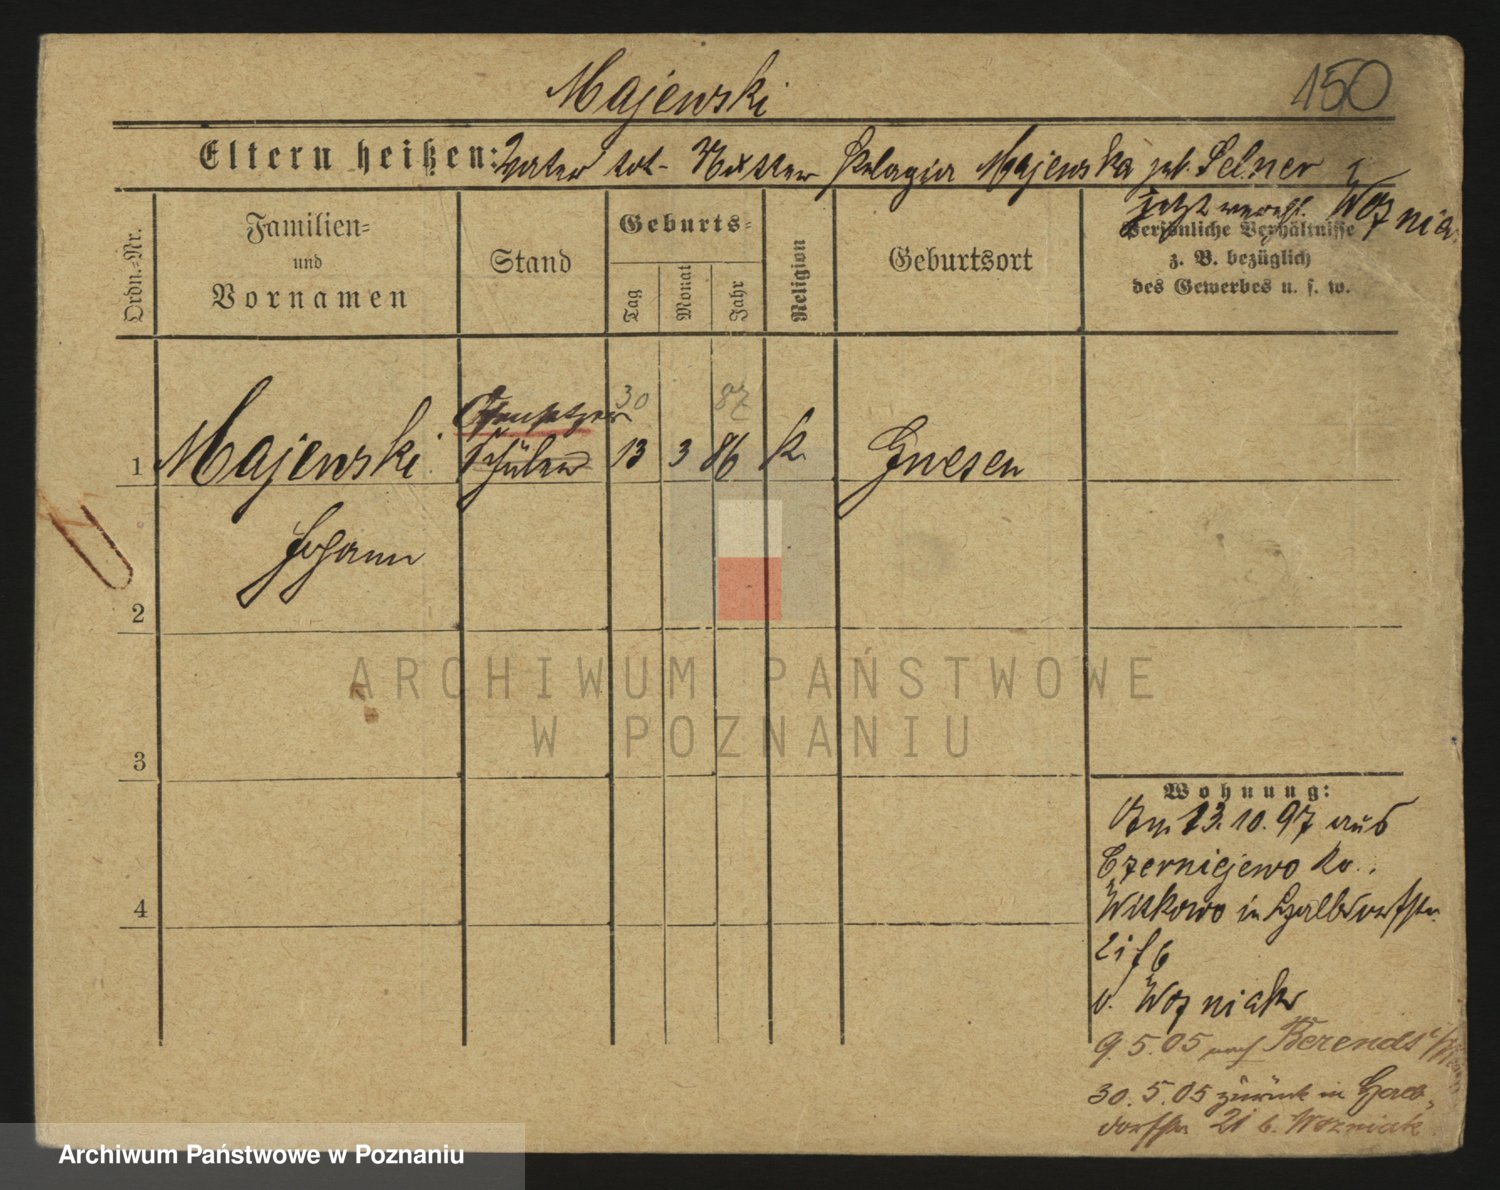 Majewski
150
Eltern heißen: Vater tot - Mutter Pelagia Majewska geb. Selner
jetzt vereh. Woznia
Ordn.-Nr.
Familien-
und
Vornamen
Stand
Geburts-
Tag
Monat
Jahr
Religion
Geburtsort
Persönliche Verhältnisse
z. B. bezüglich
des Gewerbes u. s. w.
30 87
Ofensetzer
1 Majewski Schüler 13 3 86 k. Gnesen
Johann
2
3
4
Wohnung:
Am 13. 10. 97 aus
Czerniejewo Kr.
Witkowo in Halbdorfstr.
21 f 6
b. Wozniak
9. 5. 05 nach Berends
30. 5. 05 zurück in Halb-
dorfstr 21 b. Wozniak
ARCHIWUM PAŃSTWOWE
W POZNANIU
Archiwum Państwowe w Poznaniu